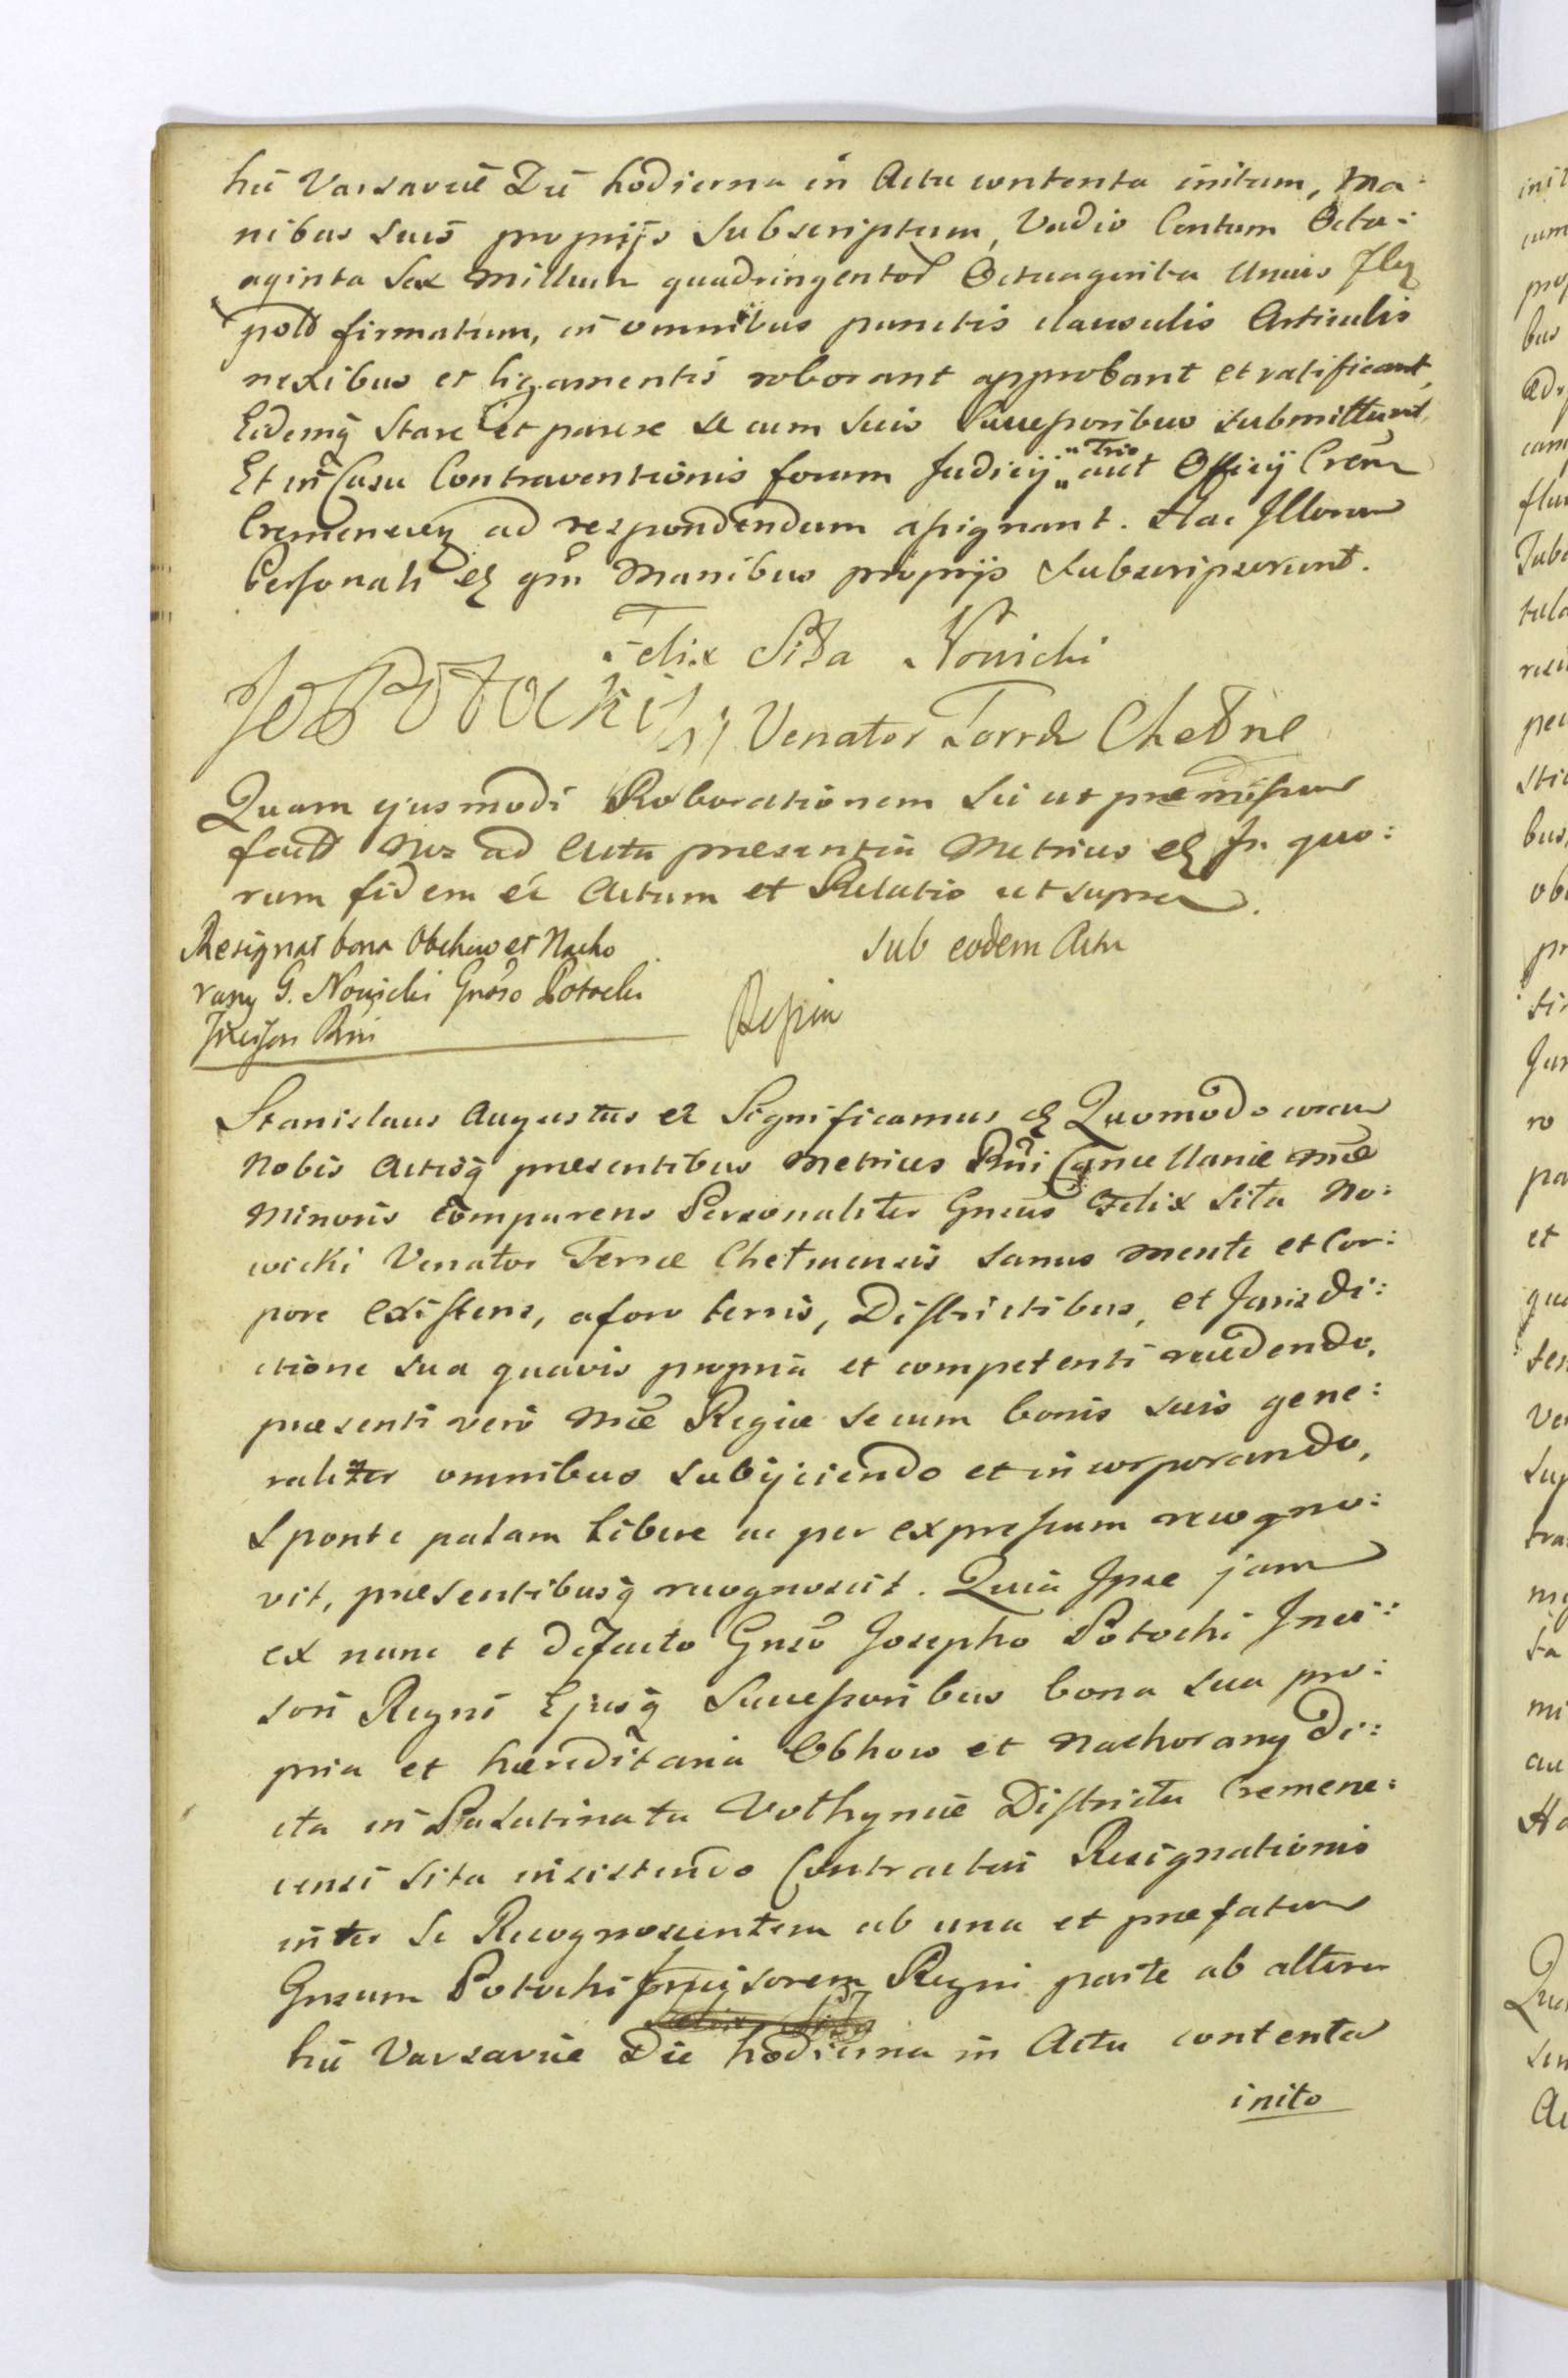 hic Varsaviæ Die hodierna in Actu contenta initum, Ma:
nibus suis proprijs subscriptum, Vadio Centum Octu:
aginta Sex Millium quadringentor Octuaginta Unius Flor
pold firmatum, in omnibus punctis clausulis Articulis
nexibus et ligamentis roborant approbant et ratificant,
Eidemq Stare et parere se cum suis Successoribus submittunt.
Et in Casu Contraventionis forum Judicij "Trio" aut Officij Crem̃
Cremenecen ad respondendum assignant. Hac Illorum
Personali et qm̃ Manibus proprijs Subscripserunt.
Felix Sita Nowicki
Jos Potocki
Venator Terræ Chełme
Quam ejusmodi Roborationem sic ut præmissum
fact Nos ad Acta præsentia Metrices et In quo:
rum fidem et Actum et Relatio ut supra.
Resignat bona Obchow et Nacho
rany G. Nowicki Gnoso Potocki
Incisori Rni
Sub eodem Actu
Stanislaus Augustus et Significamus et Quomodo coram
Nobis Actisq præsentibus Metrices Rñi Cancellariæ Mæ
Minoris comparens Personaliter Gnsus Felix Sita No:
wicki Venator Terræ Chełmensis sanus mente et Cor:
pore existens, a foro terris, Districtibus, et Jurisdi:
ctione sua quavis propria et competenti recedendo,
præsenti vero Mæ Regiæ se cum bonis suis gene:
raliter omnibus subijciendo et incorporando,
Sponte palam libere ac per expressum recogno:
vit, præsentibusq recognoscit. Quia Ipse jam
ex nunc et defacto Gnso Josepho Potocki Inci:
sori Regni Ejusq Successoribus bona sua pro:
pria et hæreditaria Obhow et Nachorany di:
cta in Palatinatu Volhyniæ Districtu Cremene:
censi sita insistendo Contractui Resignationis
inter se Recognoscentem ab una et præfatum
Gnsum Potocki Incisorem Regni parte ab altera
hic Varsaviæ Die hodierna in Actu contenta
inito